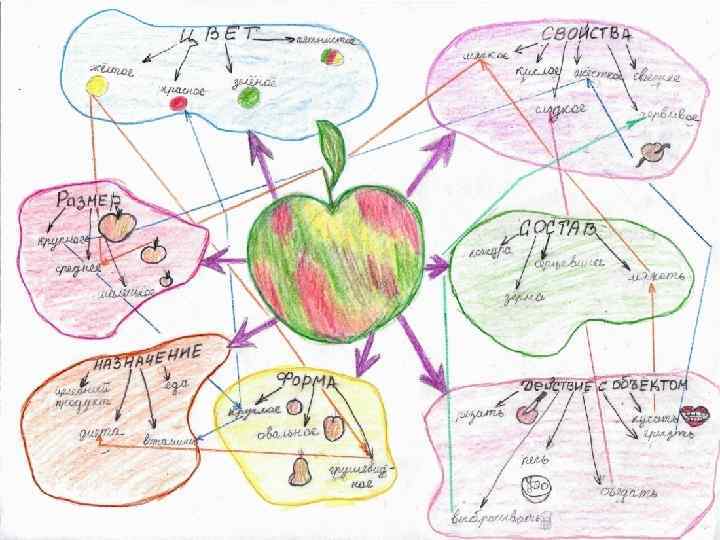 ЦВЕТ
пятнистое
жёлтое
красное
зелёное
СВОЙСТВА
мягкое
кислое
жёсткое
свежее
сладкое
червивое
РАЗМЕР
крупное
среднее
маленькое
СОСТАВ
кожура
сердцевина
мякоть
зерна
НАЗНАЧЕНИЕ
целебный
продукт
еда
диета
витамины
ФОРМА
круглое
овальное
грушевид-
ное
ДЕЙСТВИЕ С ОБЪЕКТОМ
резать
кусать
грызть
есть
объедать
выбрасывать